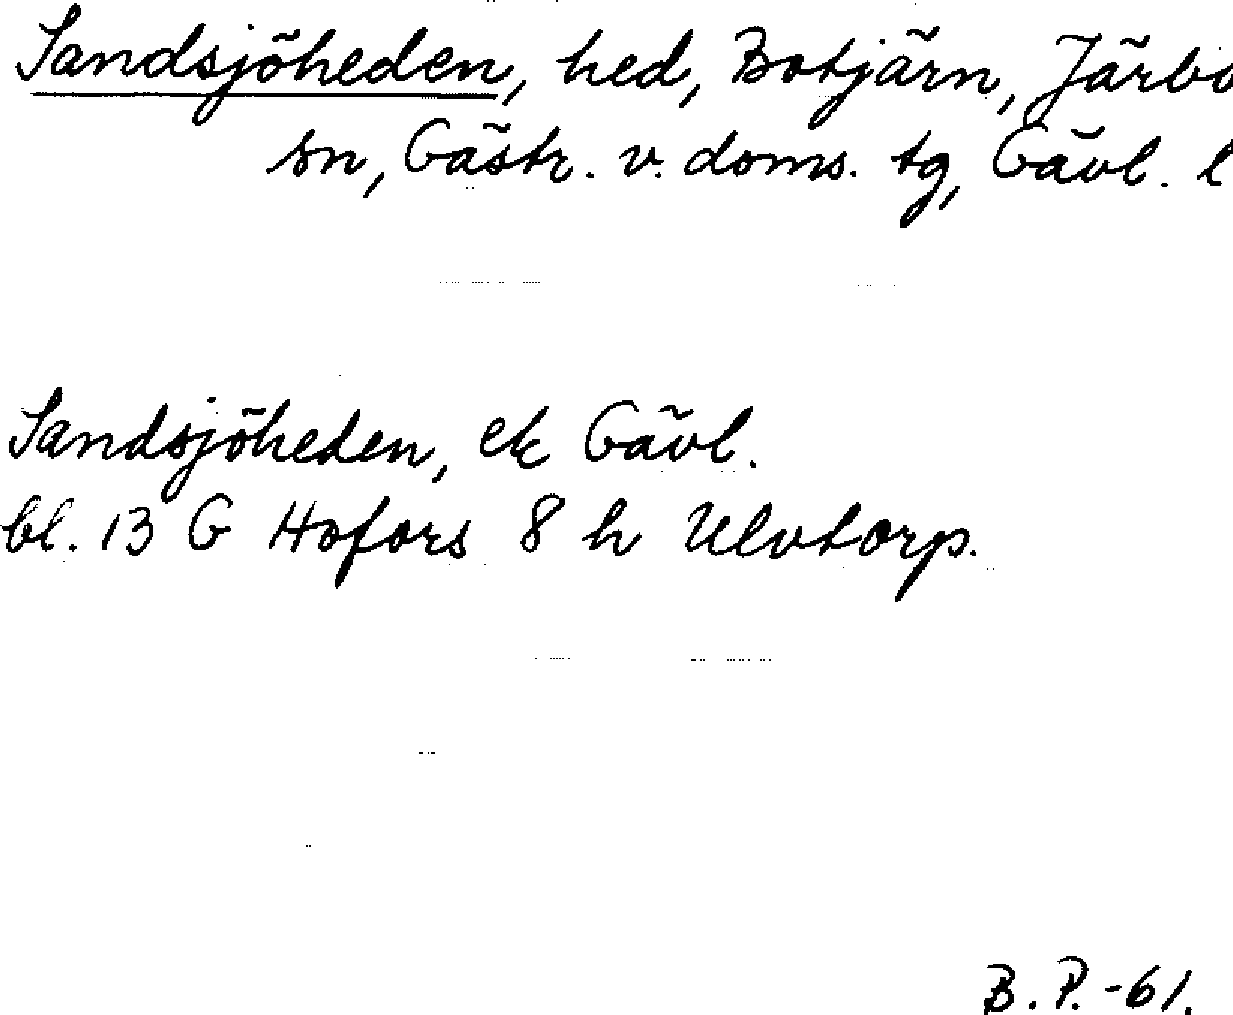 Sandsjöheden, hed, Botjärn, Järbo
sn, Gästr. v. doms. tg, Gävl. l
Sandsjöheden, ek Gävl.
bl. 13 G Hofors 8 h Ulvtorp.
B. P. -61.